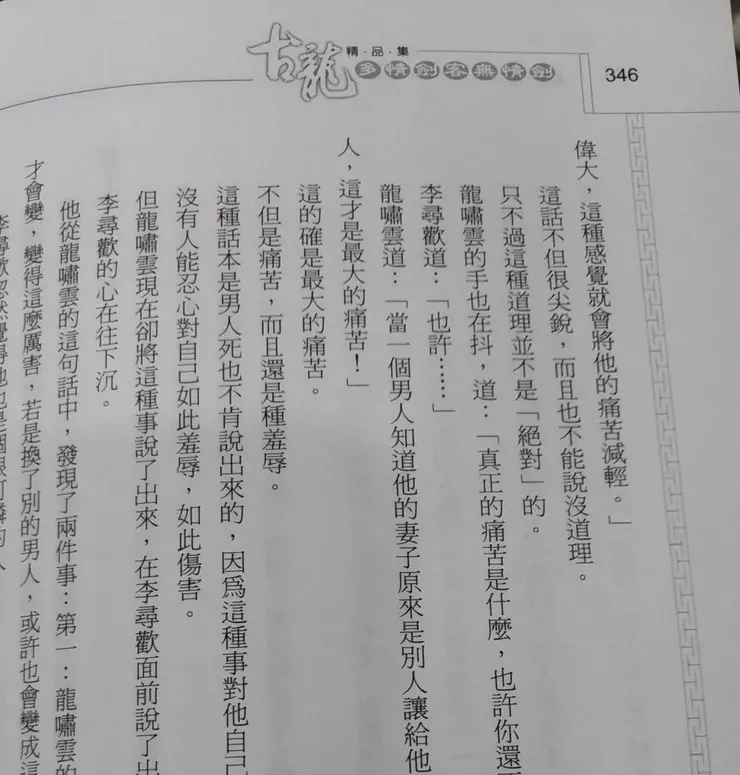 古龍
精·品·集
多情劍客無情劍
346
偉大，這種感覺就會將他的痛苦減輕。」
這話不但很尖銳，而且也不能說沒道理。
只不過這種道理並不是「絕對」的。
龍嘯雲的手也在抖，道：「真正的痛苦是什麼，也許你還
李尋歡道：「也許⋯⋯」
龍嘯雲道：「當一個男人知道他的妻子原來是別人讓給他
人，這才是最大的痛苦！」
這的確是最大的痛苦。
不但是痛苦，而且還是種羞辱。
這種話本是男人死也不肯說出來的，因為這種事對他自己
沒有人能忍心對自己如此羞辱，如此傷害。
但龍嘯雲現在卻將這種事說了出來，在李尋歡面前說了出
李尋歡的心在往下沉。
他從龍嘯雲的這句話中，發現了兩件事：第一：龍嘯雲的
才會變，變得這麼厲害，若是換了別的男人，或許也會變成這
李尋歡忽然覺得他也是個很可憐的人